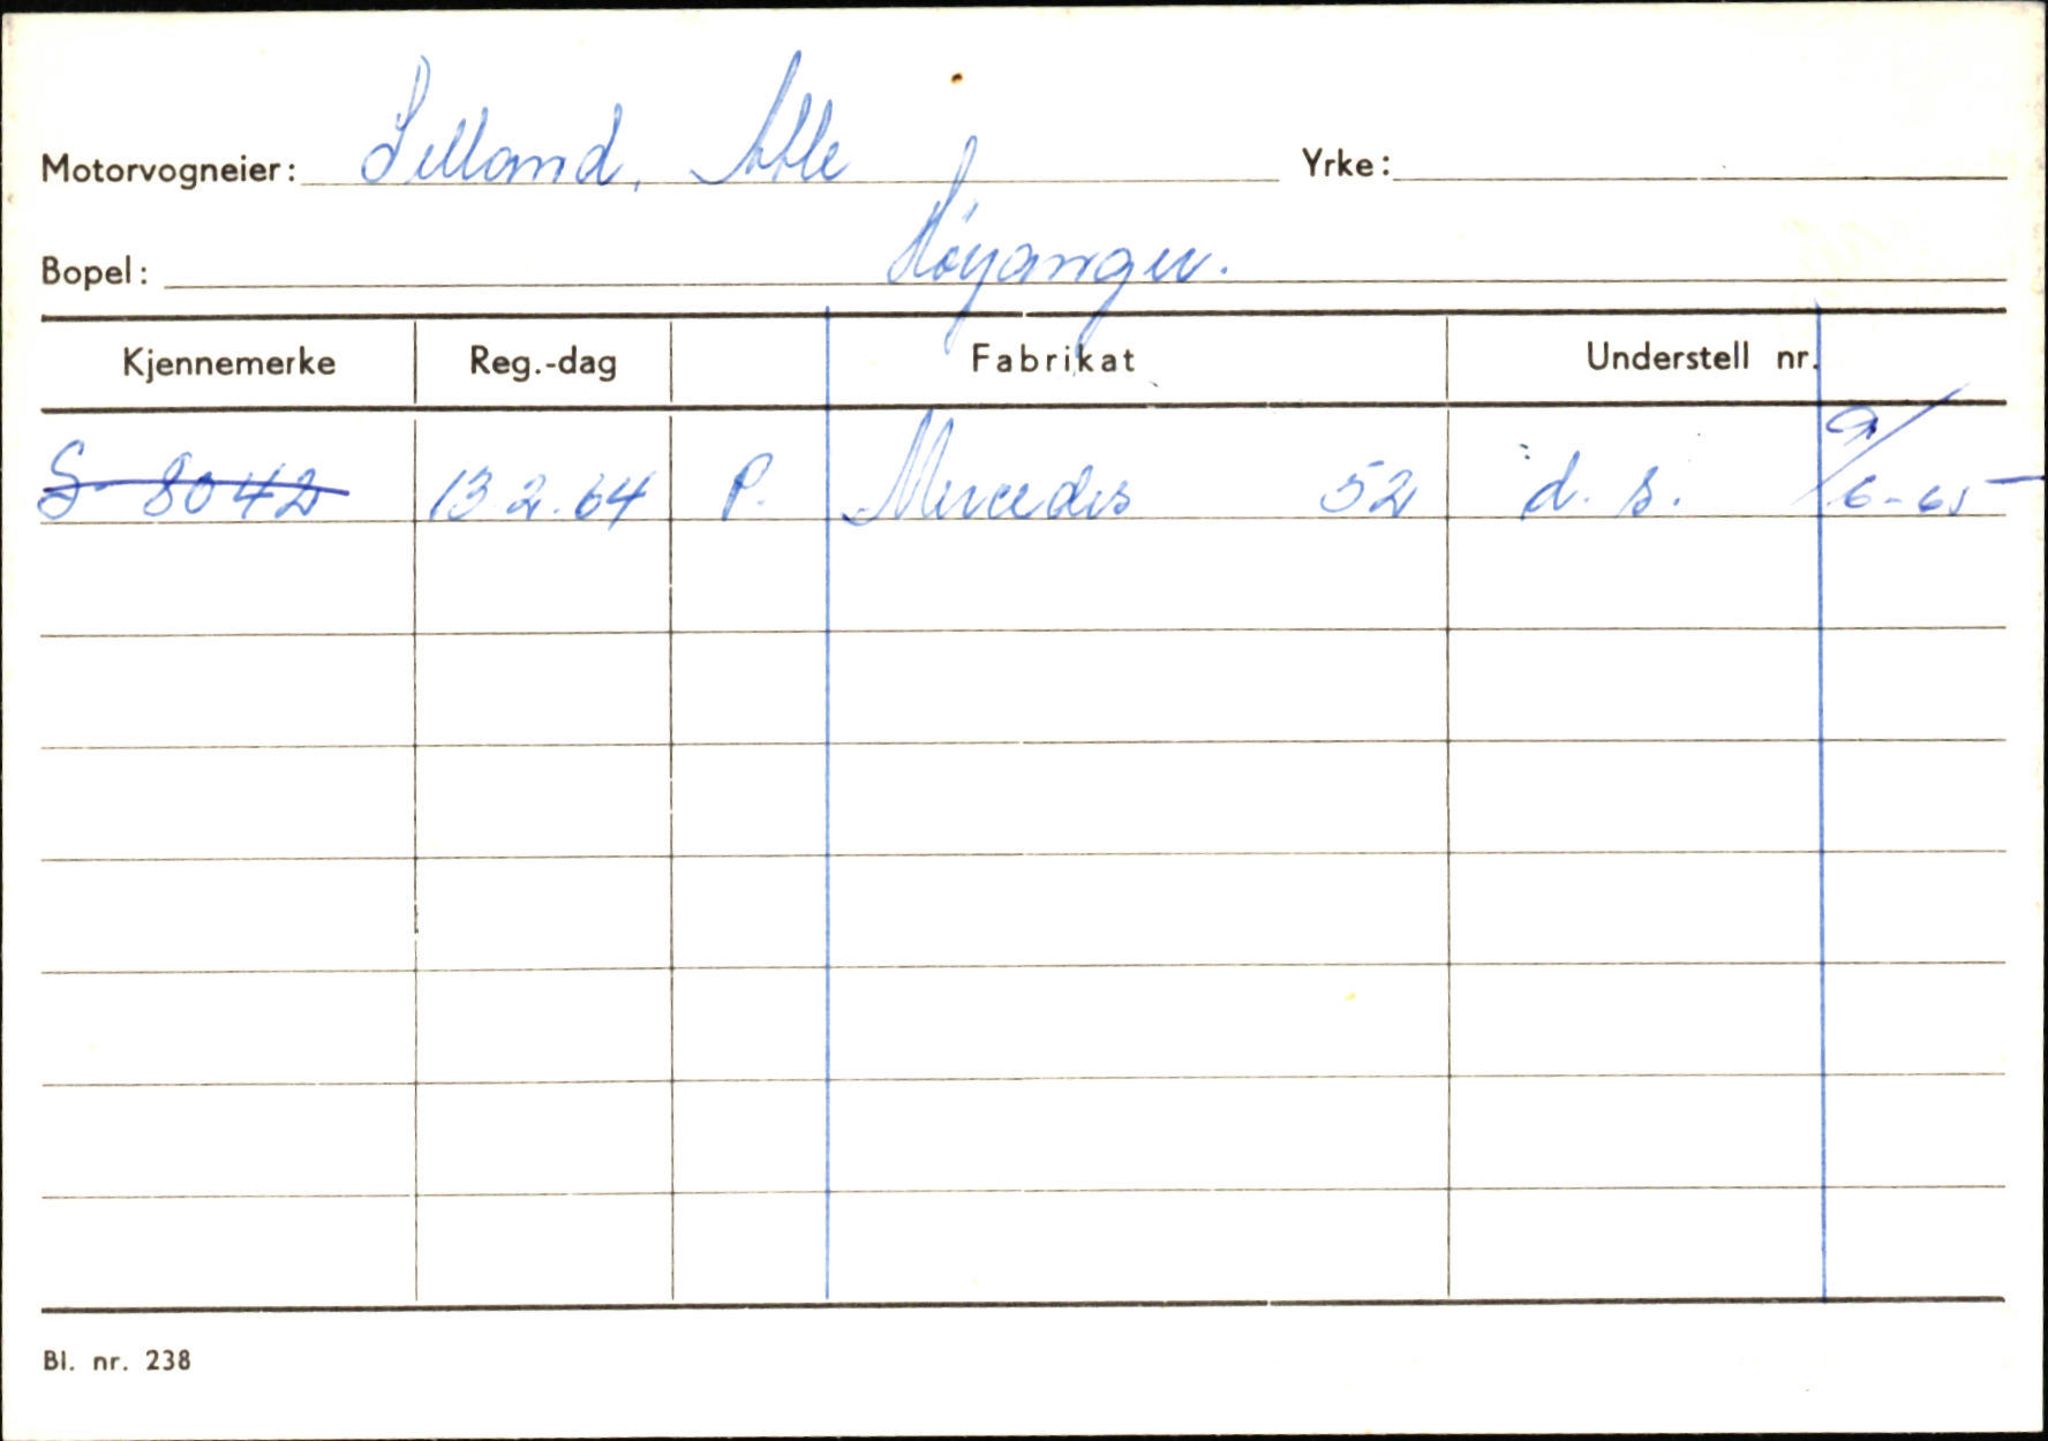 Motorvogneier: Selland, Atle Yrke:
Bopel: Høyanger.
Kjennemerke Reg.-dag Fabrikat Understell nr.
S- 8042 13.2.64 P. Mercedes 52 d. s. 9/6-65
Bl. nr. 238